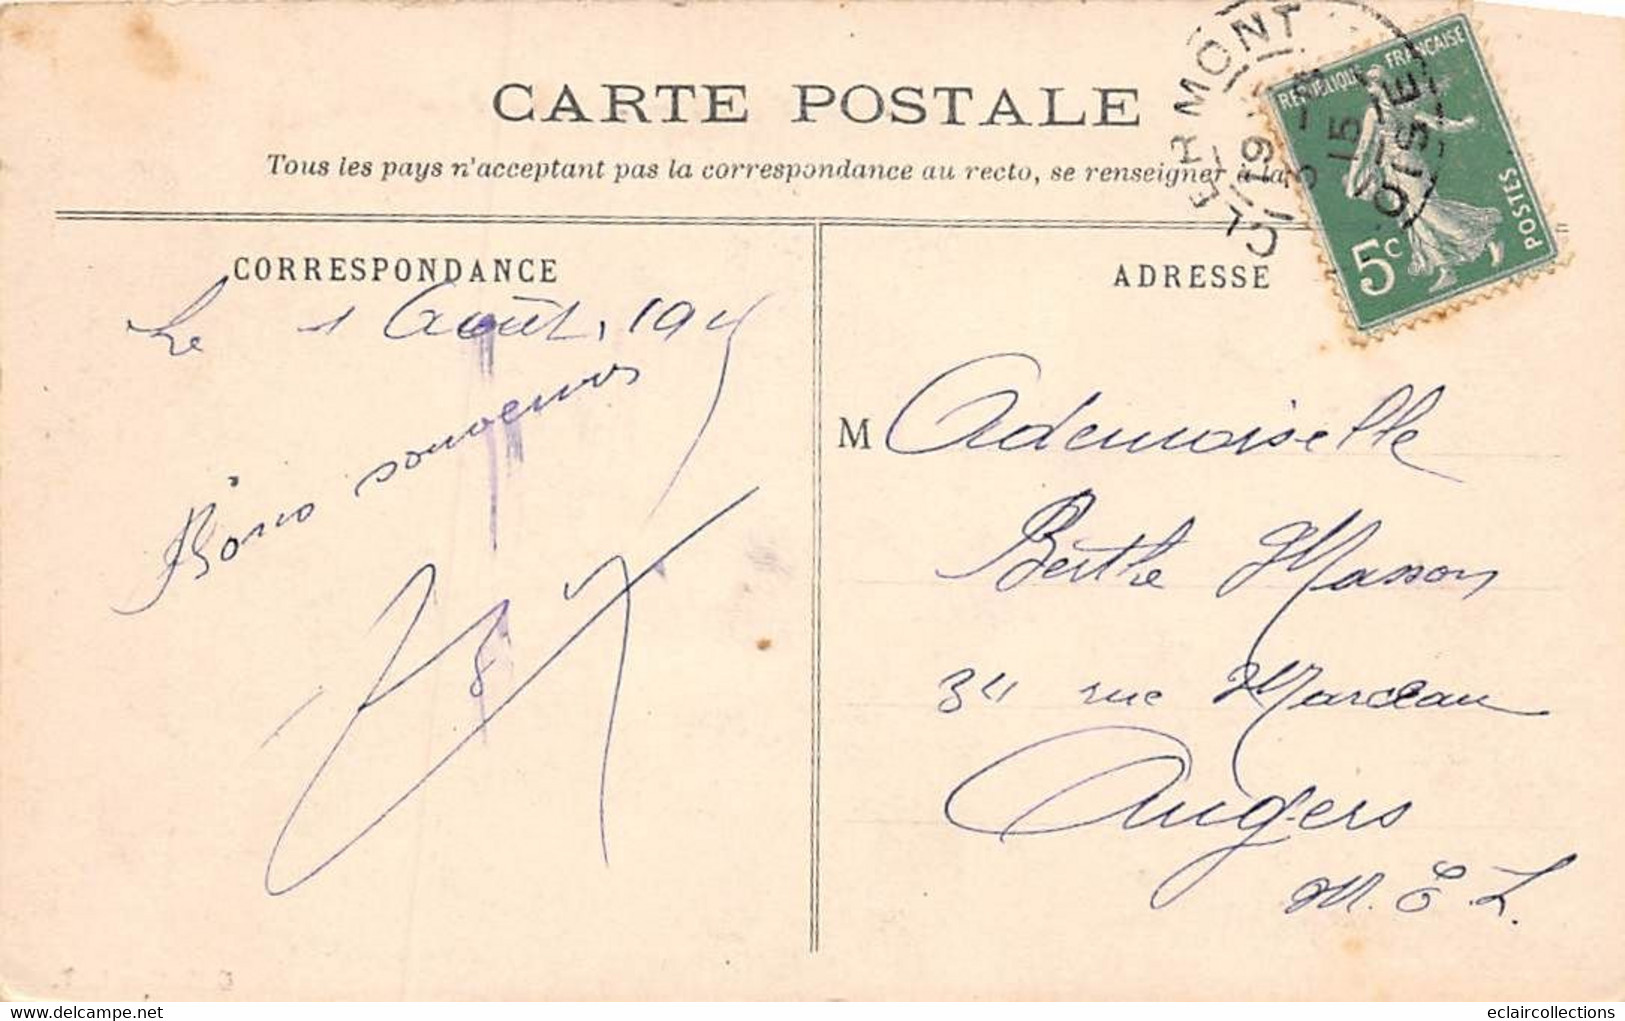 CARTE POSTALE
Tous les pays n'acceptant pas la correspondance au recto, se renseigner à la
CORRESPONDANCE
ADRESSE
CLERMONT
OISE
15
RÉPUBLIQUE FRANÇAISE
POSTES
5c
Le 1 Août, 191
Bons souvenirs
M Ademoiselle
Berthe Masson
34 rue Marceau
Angers
M. & L.
www.delcampe.net
eclaircollections